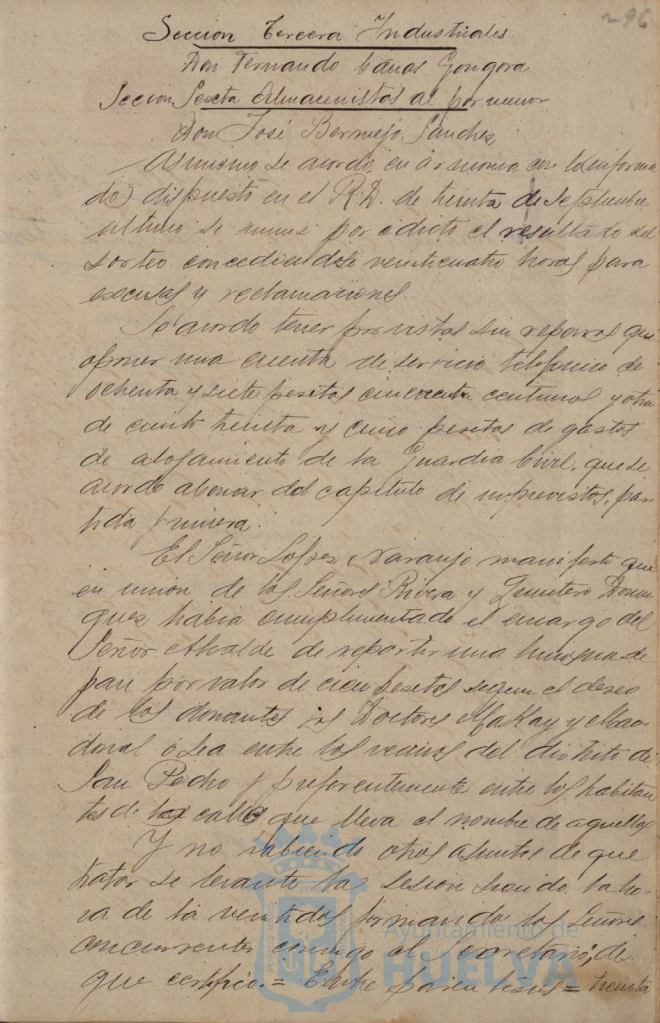 296
Seccion tercera Industriales
Don Fernando Cánas Gongora
Seccion Sexta Almacenistas al por menor
Don José Bermejo Sanchez
Asimismo se acordó, en armonia con lo informa
do) dispuesto en el R.D. de treinta de Septiembre
ultimo se anuncie por edicto el resultado del
sorteo concediendose veinticuatro horas para
escusas y reclamaciones
Se acordo tener por vistas sin reparos que
oponer una cuenta de servicio telefonico de
ochenta y siete pesetas cincuenta centimos y otra
de ciento treinta y cinco pesetas de gastos
de alojamiento de la Guardia Civil, que se
acordo abonar del capitulo de imprevistos, par
tida primera.
El Señor Lopez Naranjo manifesto que
en union de los Señores Rivera y Quintero Domin
guez habia cumplimentado el encargo del
Señor Alcalde de repartir una limosna de
pan por valor de cien pesetas segun el deseo
de los donantes los Doctores MaKay y Mac-
donal ó sea entre los vecinos del distrito de
San Pedro y preferentemente entre los habitan
tes de la calle que lleva el nombre de aquellos
Y no habiendo otros asuntos de que
tratar se levantó la sesion siendo la ho-
ra de las veintidos firmando los Señores
concurrentes conmigo el Secretario, de
que certifico.= Entre parentesis = treinta
Ayuntamiento de
HUELVA